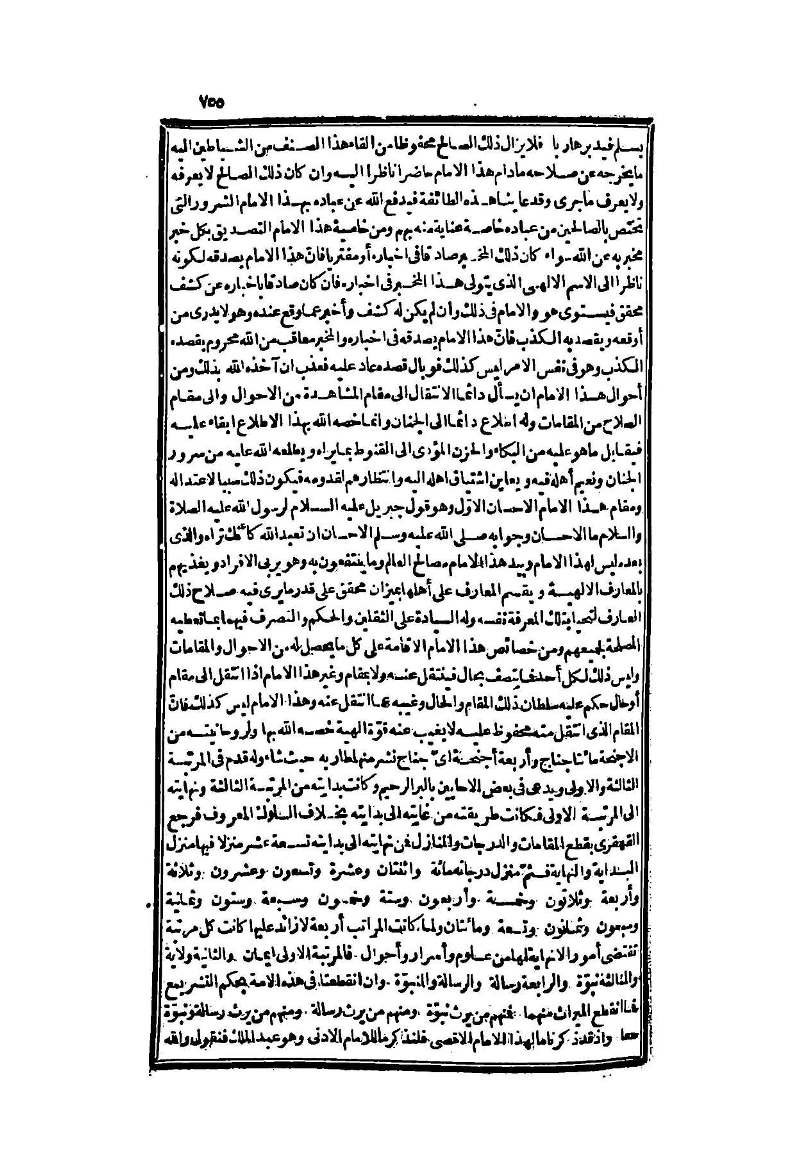 ٧٥٥
يسلم فيدبر هاربا فلا يزال ذلك الصالح محفوظا من القاء هذا الصنف من الشياطين اليه
ما يخرجه عن صلاحه مادام هذا الامام حاضرا ناظرا اليه وان كان ذلك الصالح لا يعرفه
ولا يعرف ماجرى وقد عاينا هذه الطائفة فيدفع الله عن عباده بهذا الامام الشرور التى
تختص بالصالحين من عباده خاصة عناية منه بهم ومن خاصية هذا الامام التصديق بكل خبر
مخبر به عن الله سواء كان ذلك المخبر صادقا فى اخباره أو مفتريا فان هذا الامام يصدقه لكونه
ناظرا الى الاسم الالهى الذى يتولى هذا المخبر فى اخباره فان كان صادقا باخباره عن كشف
محقق فيستوى هو والامام فى ذلك وان لم يكن له كشف وأخبر عما وقع عنده وهو لا يدرى من
أوقعه ويقصد به الكذب فان هذا الامام يصدقه فى اخباره والمخبر معاقب من الله محروم بقصده
الكذب وهو فى نفس الامر ليس كذلك فوبال قصده عاد عليه فعذب ان آخذه الله بذلك ومن
أحوال هذا الامام ان يسأل دائما الانتقال الى مقام المشاهدة من الاحوال والى مقام
الصلاح من المقامات وله اطلاع دائما الى الجنان وانما خصه الله بهذا الاطلاع ابقاء عليه
فيقابل ما هو عليه من البكاء والحزن المؤدى الى القنوط بما يراه ويطلعه الله عليه من سرور
الجنان ونعيم أهله فيه ويعاين اشتياق اهله اليه وانتظارهم لقدومه فيكون ذلك سببا لاعتداله
ومقام هذا الامام الاحسان الاول وهو قول جبريل عليه السلام لرسول الله عليه الصلاة
والسلام ما الاحسان وجوابه صلى الله عليه وسلم الاحسان ان تعبد الله كأنك تراه والذى
بعده ليس لهذا الامام وبيد هذا الامام مصالح العالم وما ينتفعون به وهو يربى الافراد ويغذيهم
بالمعارف الالهية ويقسم المعارف على أهلها بميزان محقق على قدر ما يرى فيه صلاح ذلك
العارف لتحيا بتلك المعرفة نفسه وله السيادة على الثقلين والحكم والتصرف فيهما بما تعطيه
المصلحة لجميعهم ومن خصائص هذا الامام الاقامة على كل ما يحصل له من الاحوال والمقامات
وليس ذلك لكل أحد فما يتصف بحال فينتقل عنه ولا بمقام وغير هذا الامام اذا انتقل الى مقام
أو حال حكم عليه سلطان ذلك المقام والحال وغيبه عما انتقل عنه وهذا الامام ليس كذلك فان
المقام الذى انتقل منه محفوظ عليه لا يغيب عنه قوة الهية خصه الله بها ولروحانيته من
الاجنحة مائتا جناح وأربعة أجنحة اى جناح نشر منها طار به حيث شاء وله قدم فى المرتبة
الثالثة والاولى ويدعى فى بعض الاحايين بالبر الرحيم وكانت بدايته من المرتبة الثالثة ونهايته
الى المرتبة الاولى فكانت طريقته من غايته الى بدايته بخلاف السلوك المعروف فرجع
القهقرى بقطع المقامات والدرجات والمنازل فمن نهايته الى بدايته تسعة عشر منزلا فيها منزل
البداية والنهاية فثم منزل درجاته مائة واثنتان وعشرة وتسعون وعشرون وثلاثة
وأربعة وثلاثون وخمسة وأربعون وستة وخمسون وسبعة وستون وثمانية
وسبعون وثمانون وتسعة ومائتان ولما كانت المراتب أربعة لا زائد عليها كانت كل مرتبة
تقتضى أمورا لا نهاية لها من علوم وأسرار وأحوال فالمرتبة الاولى ايمان والثانية ولاية
والثالثة نبوة والرابعة رسالة والرسالة والنبوة وان انقطعتا فى هذه الامة بحكم التشريع
فما انقطع الميراث منهما فمنهم من يرث نبوة ومنهم من يرث رسالة ومنهم من يرث رسالة ونبوة
معا واذ قد ذكرنا ما لهذا الامام الاقصى فلنذكر ما للامام الادنى وهو عبد الملك فنقول والله